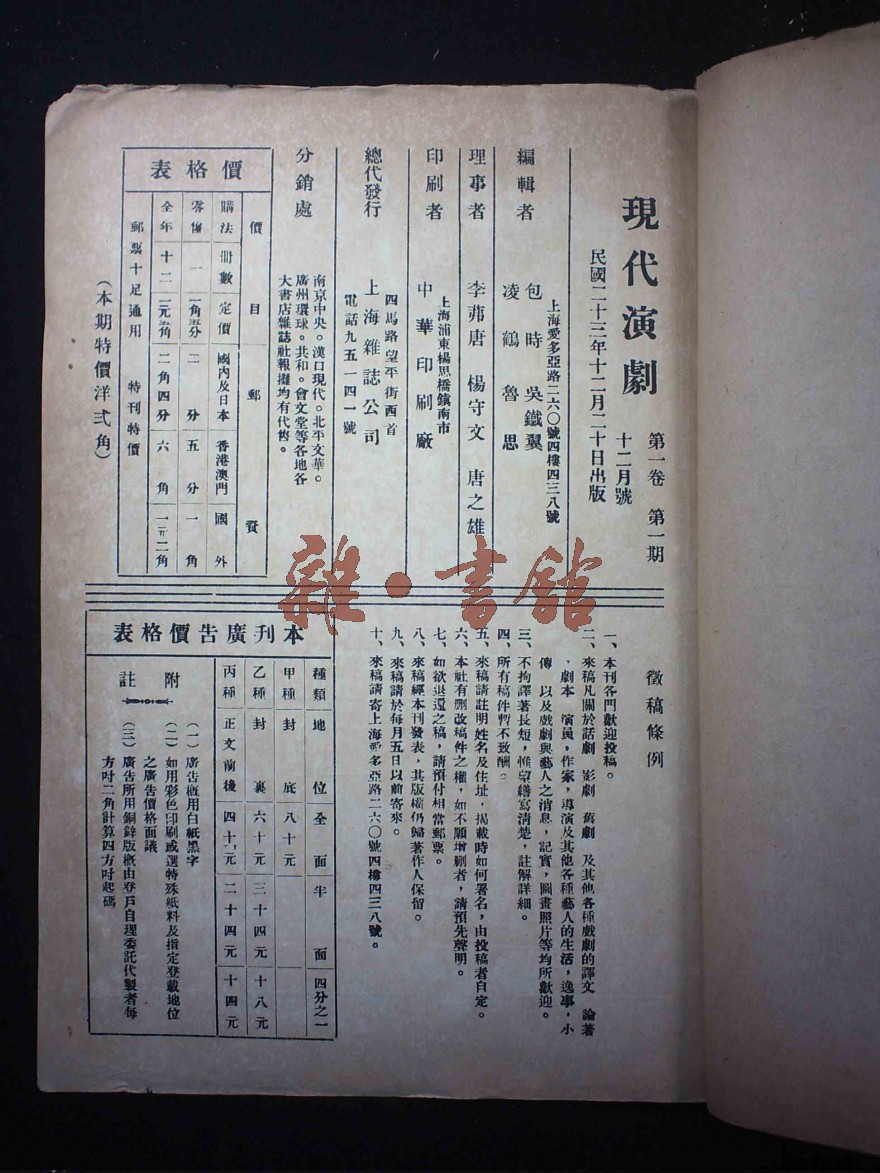 現代演劇
第一卷 第一期
十二月號
民國二十三年十二月二十日出版
上海愛多亞路二六〇號四樓四三八號
編輯者
包時 吳鐵翼
凌鶴 魯思
理事者 李茀唐 楊守文 唐之雄
上海浦東楊思橋鎮南市
印刷者 中華印刷廠
四馬路望平街西首
總代發行 上海雜誌公司
電話九五一四一號
分銷處
南京中央。漢口現代。北平文華。
廣州環球。共和。會文堂等各地各
大書店雜誌社報攤均有代售。
價格表
價目 郵資
購法 冊數 定價 國內及日本 香港澳門 國外
零售 一 二分 五分 一角
全年 十二 二角四分 六角 一元二角
郵票十足通用 特刊特價
(本期特價洋弍角)
徵稿條例
一、本刊各門歡迎投稿。
二、來稿凡關於話劇 影劇 舊劇 及其他各種戲劇的譯文 論著
，劇本 演員，作家，導演及其他各種藝人的生活，逸事，小
傳 以及戲劇與藝人之消息，記實，圖畫照片等均所歡迎。
三、不拘譯著長短，惟望繕寫清楚，註解詳細。
四、所有稿件暫不致酬。
五、來稿請註明姓名及住址，揭載時如何署名，由投稿者自定。
六、本社有刪改稿件之權，如不願增刪者，請預先聲明。
七、如欲退還之稿，請預付相當郵票。
八、來稿經本刊發表，其版權仍歸著作人保留。
九、來稿請於每月五日以前寄來。
十、來稿請寄上海愛多亞路二六〇號四樓四三八號。
本刊廣告價格表
種類 地位 全面 半面 四分之一
甲種 封底 八十元
乙種 封裏 六十元 三十四元 十八元
丙種 正文前後 四十元 二十四元 十四元
附註
(一)廣告概用白紙黑字
(二)如用彩色印刷或選特殊紙料及指定登載地位
之廣告價格面議
(三)廣告所用銅鋅版概由登戶自理委託代製者每
方吋二角計算四方吋起碼
雜·書館